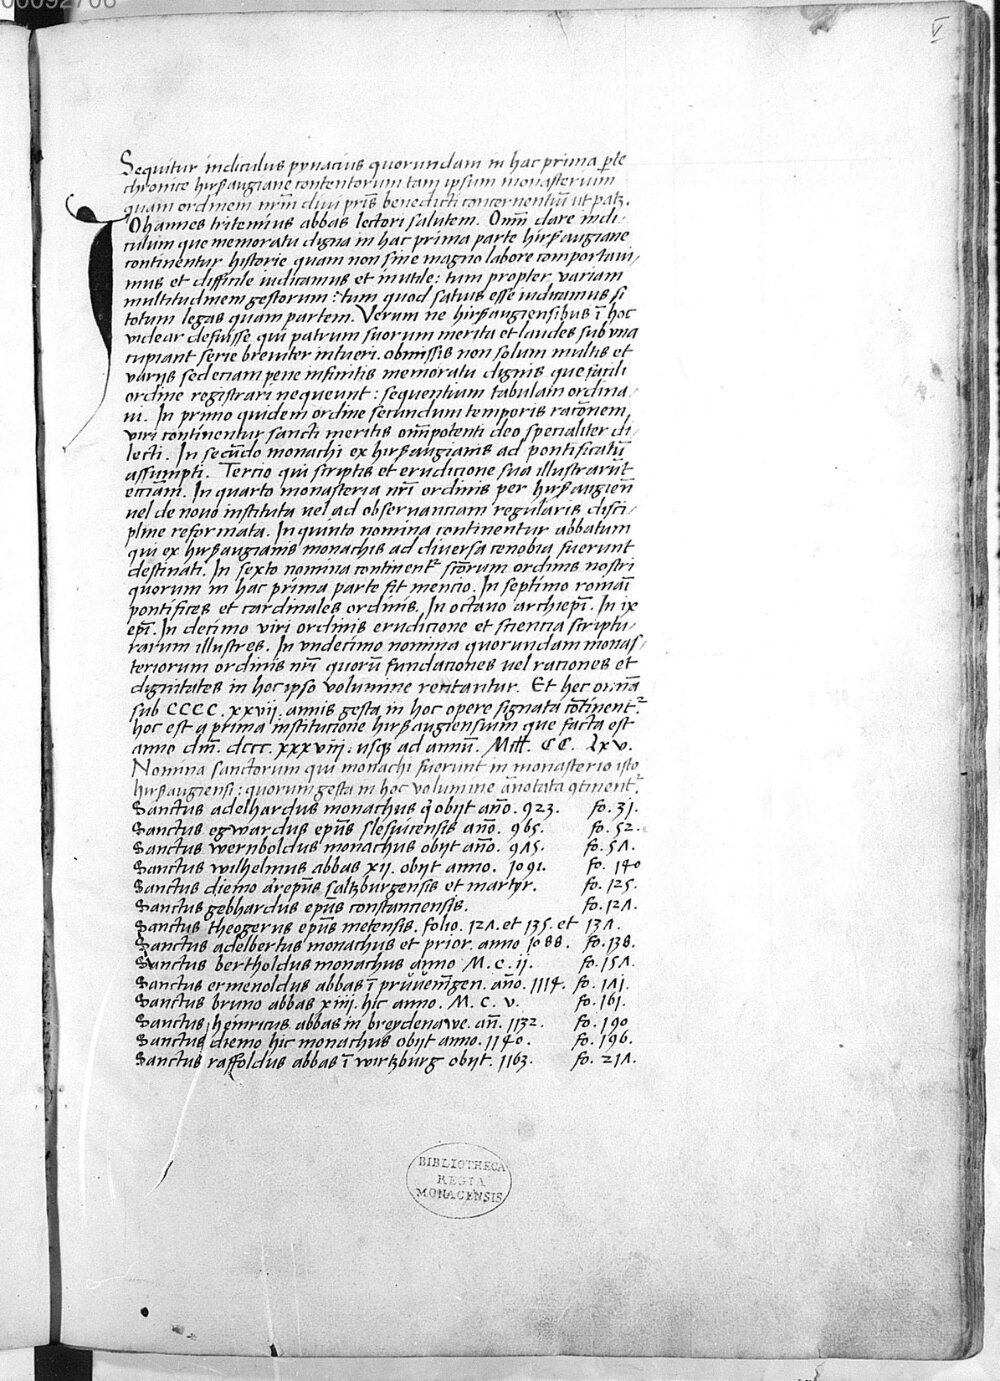 00092706
V
Sequitur indiculus pynacius quorundam in hac prima p̄te
chronice hirsaugiane contentorum tam ipsum monasterium
quam ordinem nrm̄ diui pris̄ benedicti concernentiū ut patz.
Iohannes tritemius abbas lectori salutem. Omn̄ dare indi-
culum que memoratu digna in hac prima parte hirsaugiane
continentur historie quam non sine magno labore comportaui-
mus et difficile iudicamus et inutile: tum propter variam
multitudinem gestorum: tum quod satius esse iudicamus si
totum legas quam partem. Verum ne hirsaugiensibus ī hoc
videar defuisse qui patrum suorum merita et laudes sub vna
cupiant serie breuiter intueri. obmissis non solum multis et
varijs sed eciam pene infinitis memoratu dignis que facili
ordine registrari nequeunt: sequentium tabulam ordina-
ui. In primo quidem ordine secundum temporis racōnem,
viri continentur sancti meritis om̄ipotenti deo specialiter di-
lecti. In secūdo monachi ex hirsaugianis ad pontificatū
assumpti. Tercio qui scriptis et erudicione sua illustrarūt
ecciām. In quarto monasteria nrī ordinis per hirsaugien̄
vel de nouo instituta vel ad obseruanciam regularis disci-
pline reformata. In quinto nomina continentur abbatum
qui ex hirsaugianis monachis ad diuersa cenobia fuerunt
destinati. In sexto nomina continent sctōrum ordinis nostri
quorum in hac prima parte fit mencio. In septimo romāi
pontifices et cardinales ordinis. In octauo archiepī. In ix
epī. In decimo viri ordinis erudicione et sciencia scriptu-
rarum illustres. In vndecimo nomina quorundam monas-
teriorum ordinis nrī quorū fundaciones vel raciones et
dignitates in hoc ipso volumine recitantur. Et hec omnā
sub CCCC. xxvii. annis gesta in hoc opere signata cōtinent.
hoc est a prima institucione hirsaugiensium que facta est
anno dnī. dccc. xxxviii. usq; ad annū. Mill. CC. Lxv.
Nomina sanctorum qui monachi fuerunt in monasterio isto
hirsaugiensi: quorum gesta in hoc volumine ānotata 9tinent.
Sanctus adelhardus monachus q̄ obijt año. 923. fo. 31.
Sanctus egwardus epūs slesuicensis año. 965. fo. 52.
Sanctus wernboldus monachus obijt año. 9Λ5. fo. 5Λ.
Sanctus wilhelmus abbas xij. obijt anno. 1091. fo. 140
Sanctus diemo arepūs saltzburgensis et martyr. fo. 125.
Sanctus gebhardus epūs constanciensis. fo. 12Λ.
Sanctus theogerus epūs metensis. folio. 12Λ. et 135. et 13Λ.
Sanctus adelbertus monachus et prior. anno 1088. fo. 138.
Sanctus bertholdus monachus anno M. c. ii. fo. 15Λ.
Sanctus ermenoldus abbas ī prūueningen. año. 1114. fo. 1Λ1.
Sanctus bruno abbas xiiij. hic anno. M. C. v. fo. 161.
Sanctus heinricus abbas in breydenawe. an̄. 1132. fo. 190
Sanctus diemo hic monachus obijt anno. 1140. fo. 196.
Sanctus raffoldus abbas ī wirtzburg obijt. 1163. fo. 21Λ.
BIBLIOTHECA
REGIA
MONACENSIS